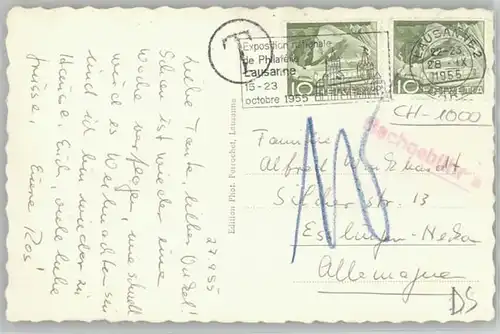 27.9.55
Liebe Tante, lieber Onkel!
Schon ist wieder eine
Woche verflogen, wie schnell
wird es Weihnachten sein
und ich bin wieder zu
Hause. Euch, viele liebe
Grüsse!
Eure Ros!
Edition Phot. Perrochet, Lausanne
T
Exposition nationale
de Philatélie
Lausanne
15-23
octobre 1955
10 HELVETIA
10 HELVETIA
LAUSANNE 2
22-23
28 IX
1955
CH-1000
Nachgebühr
Familie
Alfred
13
Esslingen-Neckar
Allemagne
DS